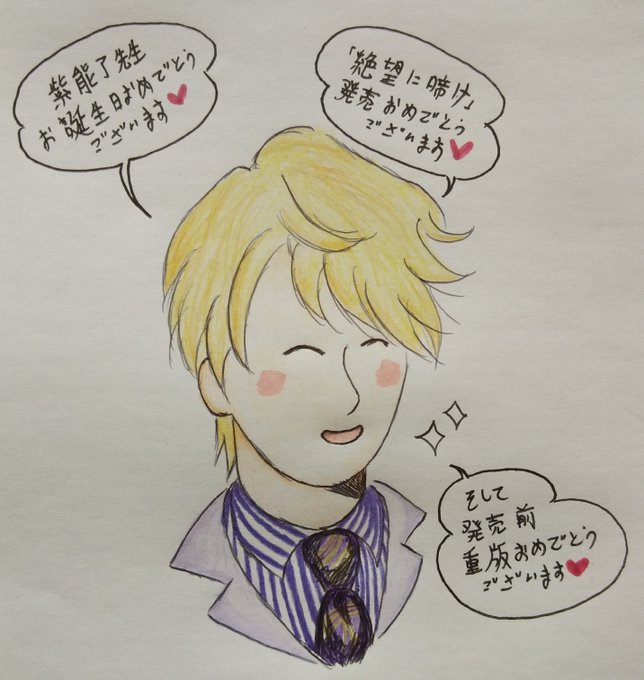 紫能了先生
お誕生日おめでとう
ございます♥
「絶望に啼け」
発売おめでとう
ございます♥
そして
発売前
重版おめでとう
ございます♥